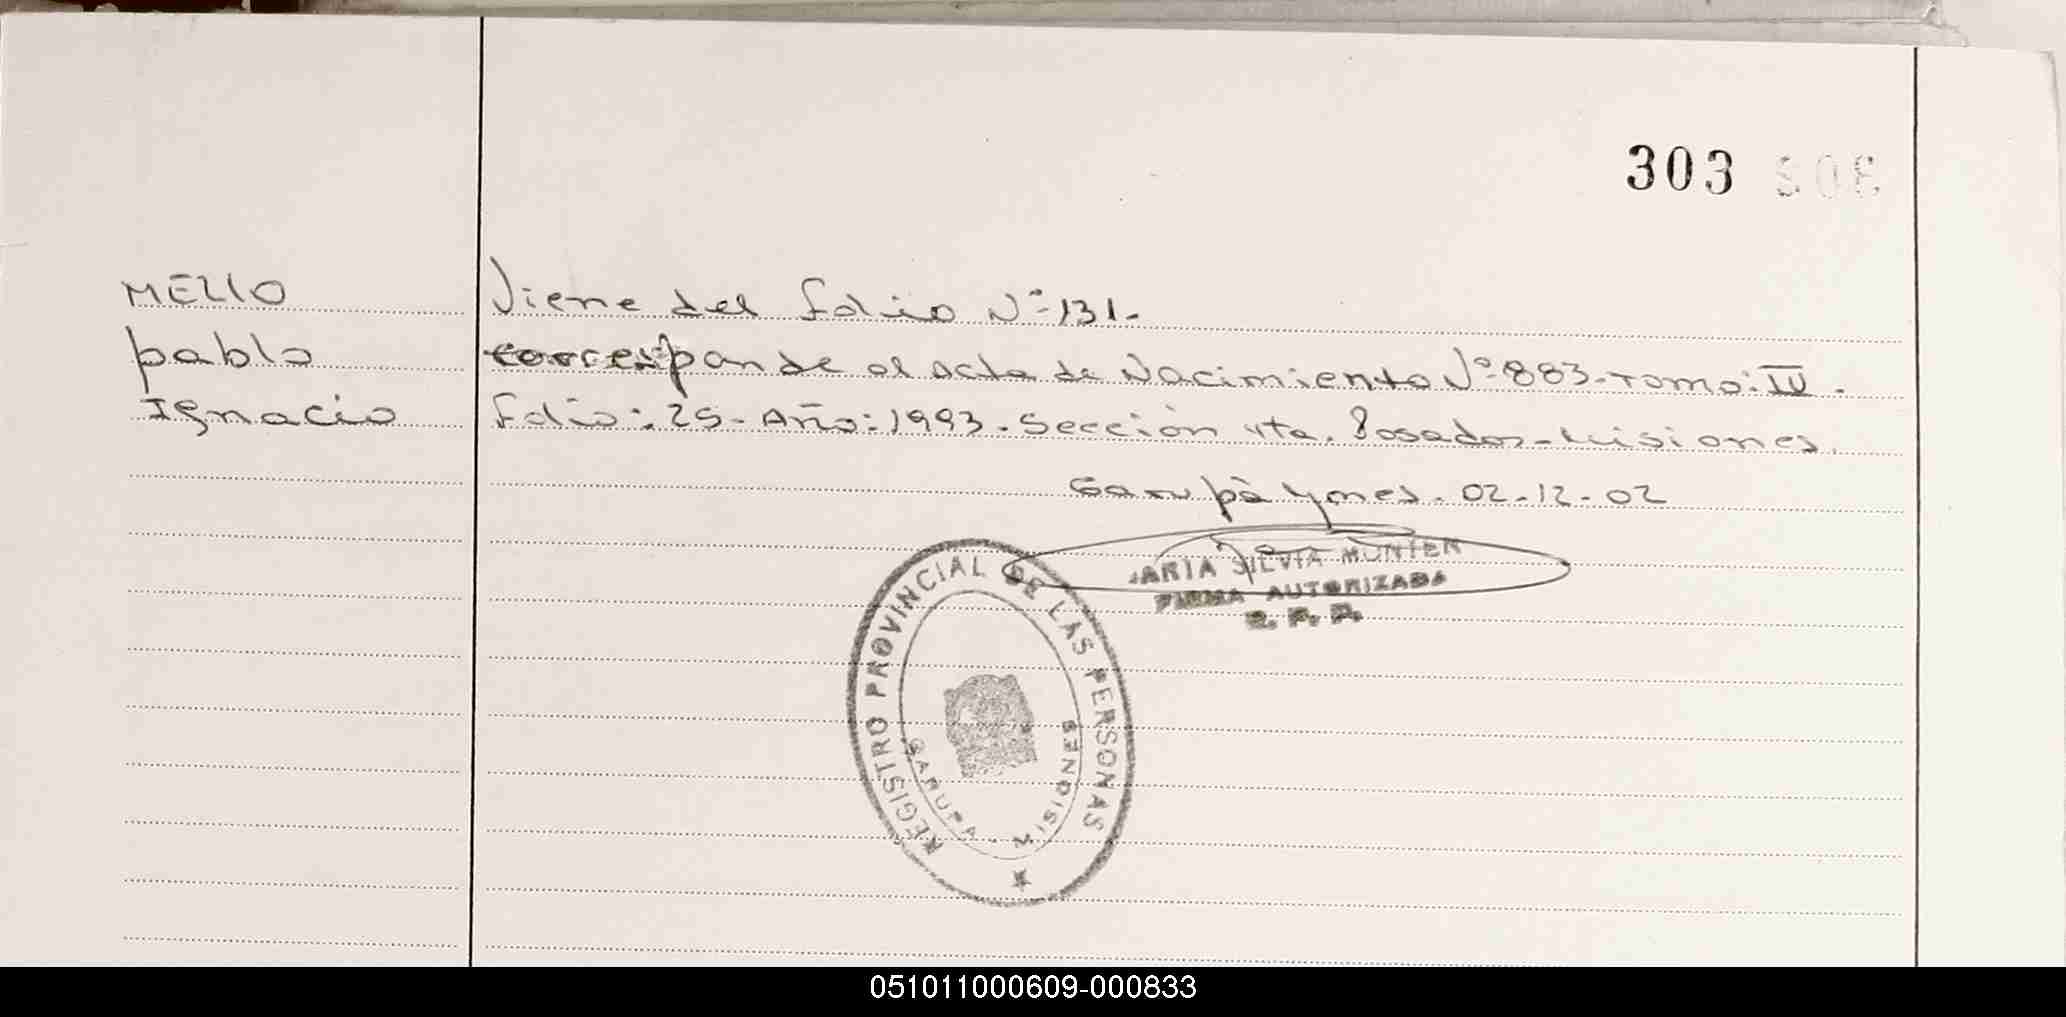 303 303
MELLO
Pablo
Ignacio
Viene del folio Nº 131.
corresponde al acta de Nacimiento Nº 883. Tomo: IV.
folio: 25 - Año: 1993. Sección 4ta. Posadas - Misiones.
Garupá Mnes. 02-12-02
ARIA SILVIA MUNIER
FIRMA AUTORIZADA
R. P. P.
REGISTRO PROVINCIAL DE LAS PERSONAS
GARUPA - MISIONES
051011000609-000833